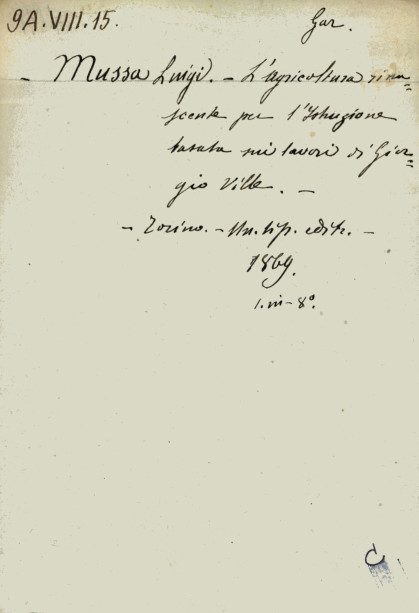 9A.VIII.15.
Gar.
- Mussa Luigi. - L'agricoltura rina=
scente per l'Istruzione
basata sui lavori di Gior=
gio Ville. -
- Torino. - Un. tip. edit. -
1869.
1. in-8°.
C